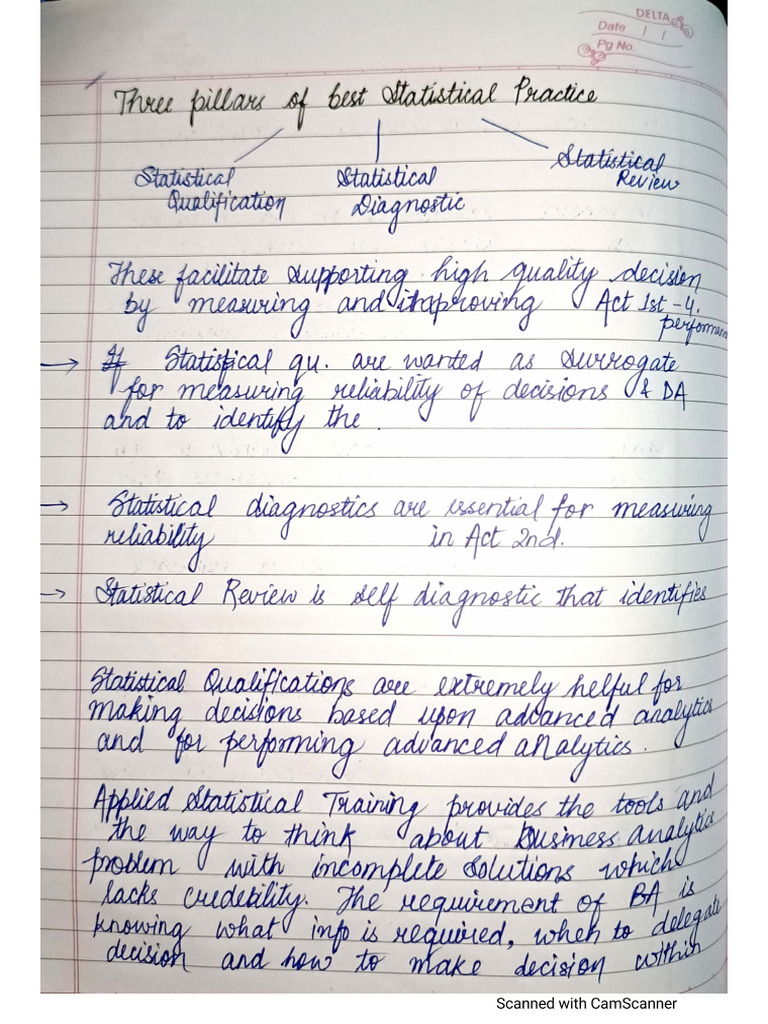 DELTA
Date / /
Pg No.
Three pillars of best Statistical Practice
Statistical Qualification
Statistical Diagnostic
Statistical Review
These facilitate supporting high quality decision
by measuring and improving Act 1st - 4.
performance
→ Statistical qu. are wanted as surrogate
for measuring reliability of decisions & DA
and to identify the .
→ Statistical diagnostics are essential for measuring
reliability in Act 2nd.
→ Statistical Review is self diagnostic that identifies
Statistical Qualifications are extremely helful for
making decisions based upon advanced analytics
and for performing advanced analytics.
Applied Statistical Training provides the tools and
the way to think about business analytics
problem with incomplete solutions which
lacks credebility. The requirement of BA is
knowing what info is required, when to delegate
decision and how to make decision within
Scanned with CamScanner